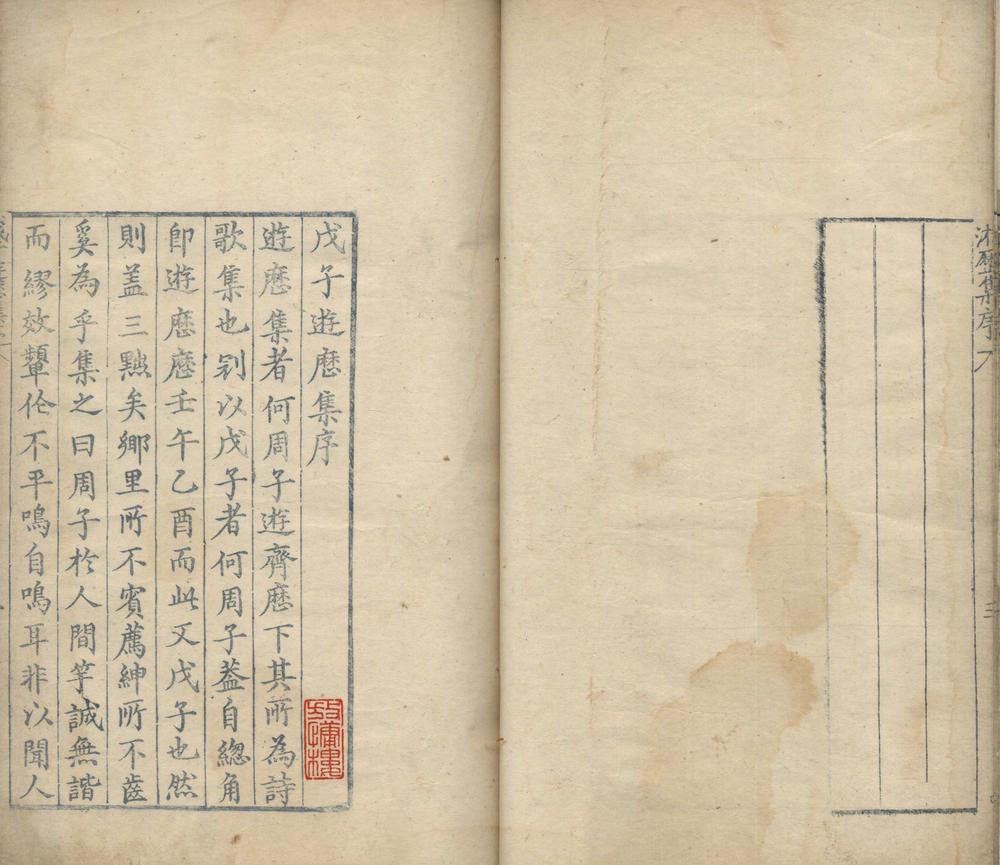 集序
三
戊子遊厯集序
遊厯集者何周子遊齊厯下其所為詩
歌集也别以戊子者何周子葢自緫角
即遊厯厯壬午乙酉而此又戊子也然
則盖三㸃矣鄉里所不賓薦紳所不齒
奚為乎集之曰周子於人間竽誠無諧
而繆效顰伦不平鳴自鳴耳非以聞人